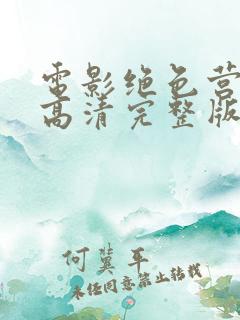 电影绝色营
高清完整版
何冀平
未经同意禁止转载